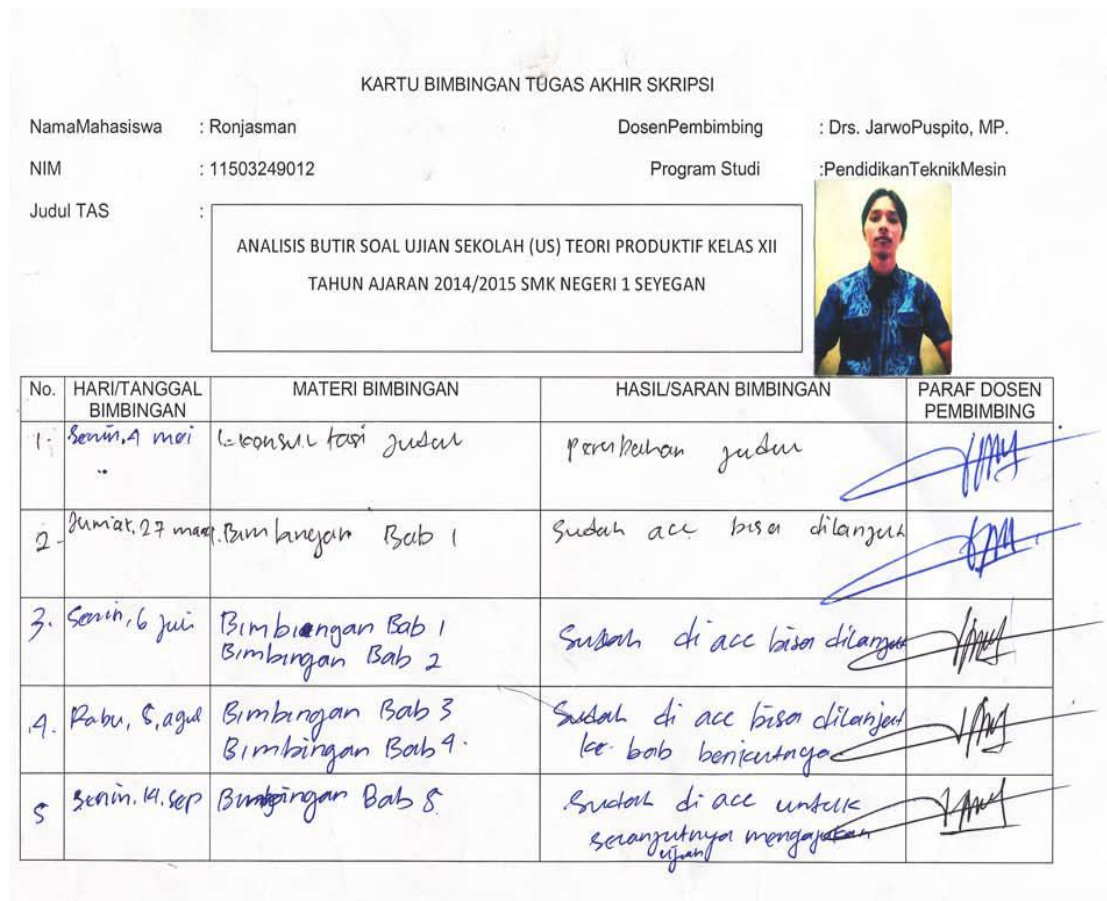 KARTU BIMBINGAN TUGAS AKHIR SKRIPSI
NamaMahasiswa : Ronjasman DosenPembimbing : Drs. JarwoPuspito, MP.
NIM : 11503249012 Program Studi :PendidikanTeknikMesin
Judul TAS :
ANALISIS BUTIR SOAL UJIAN SEKOLAH (US) TEORI PRODUKTIF KELAS XII
TAHUN AJARAN 2014/2015 SMK NEGERI 1 SEYEGAN
No. HARI/TANGGAL BIMBINGAN MATERI BIMBINGAN HASIL/SARAN BIMBINGAN PARAF DOSEN PEMBIMBING
1. Senin, 4 mei konsultasi judul perubahan judul
2. Jumiat, 27 Bimbingan Bab 1 Sudah acc bisa dilanjut
3. Senin, 6 Juli Bimbingan Bab 1 Sudah di acc bisa dilanjut
Bimbingan Bab 2
4. Rabu, 5, agus Bimbingan Bab 3 Sudah di acc bisa dilanjut
Bimbingan Bab 4. ke bab berikutnya
5 Senin, 14, sep Bimbingan Bab 5 Sudah di acc untuk
selanjutnya mengajukan
ujian